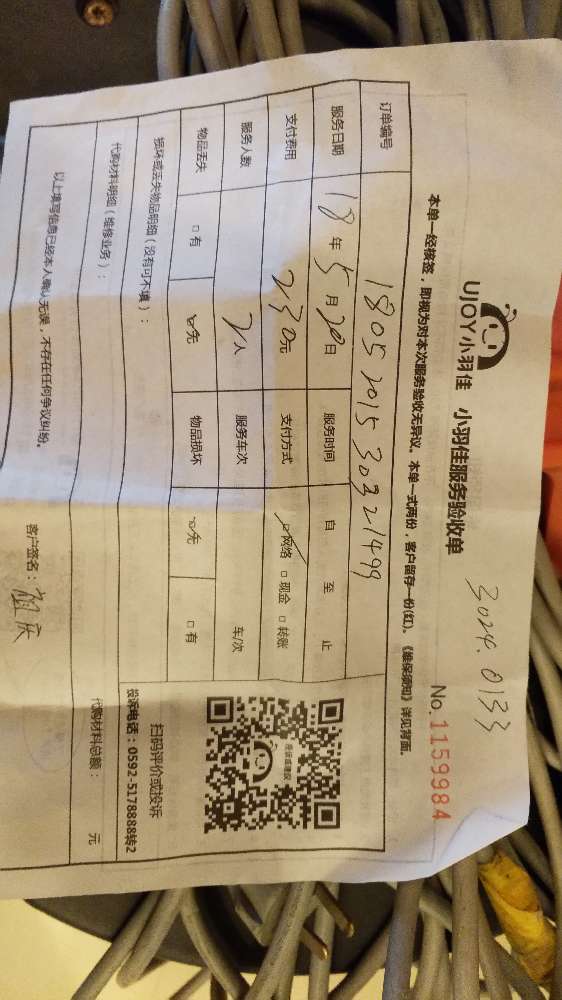 3024.0133
UJOY小羽佳 小羽佳服务验收单
No.1159984
本单一经核签，即视为对本次服务验收无异议。本单一式两份，客户留存一份(红)。《维保须知》详见背面。
订单编号 1805201530321499
服务日期 18年5月20日 服务时间 自 至 止
支付费用 230元 支付方式 □网络 □现金 □转账
服务人数 2人 服务车次 车/次
物品丢失 □有 □无 物品损坏 □无 □有
损坏或丢失物品明细（没有可不填）：
扫码评价或投诉
投诉电话：0592-5178888转2
代购材料明细（维修业务）：
代购材料总额： 元
以上填写信息已经本人确认无误，不存在任何争议纠纷。
客户签名：